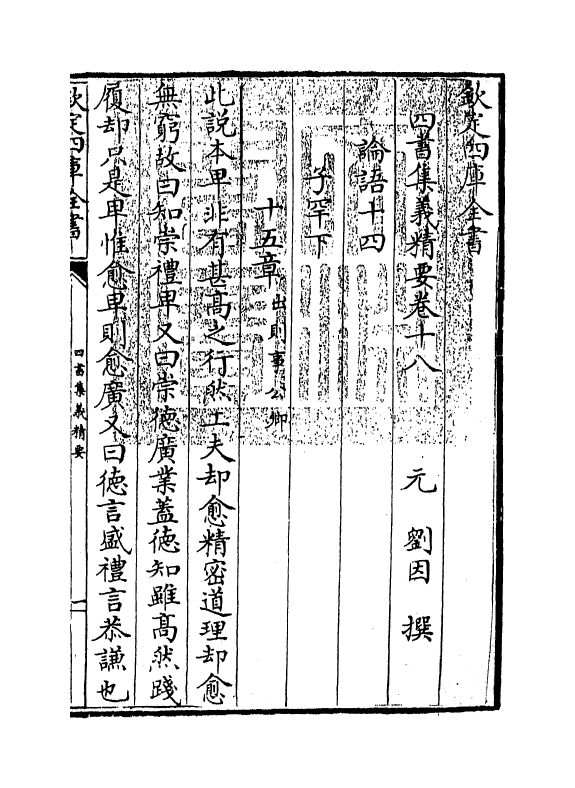 欽定四庫全書
四書集義精要卷十八
元 劉因 撰
論語十四
子罕下
十五章 出則事公卿
此說本卑非有甚高之行然工夫却愈精密道理却愈
無窮故曰知崇禮卑又曰崇德廣業蓋德知雖高然踐
履却只是卑惟愈卑則愈廣又曰德言盛禮言恭謙也
欽定四庫全書
四書集義精要